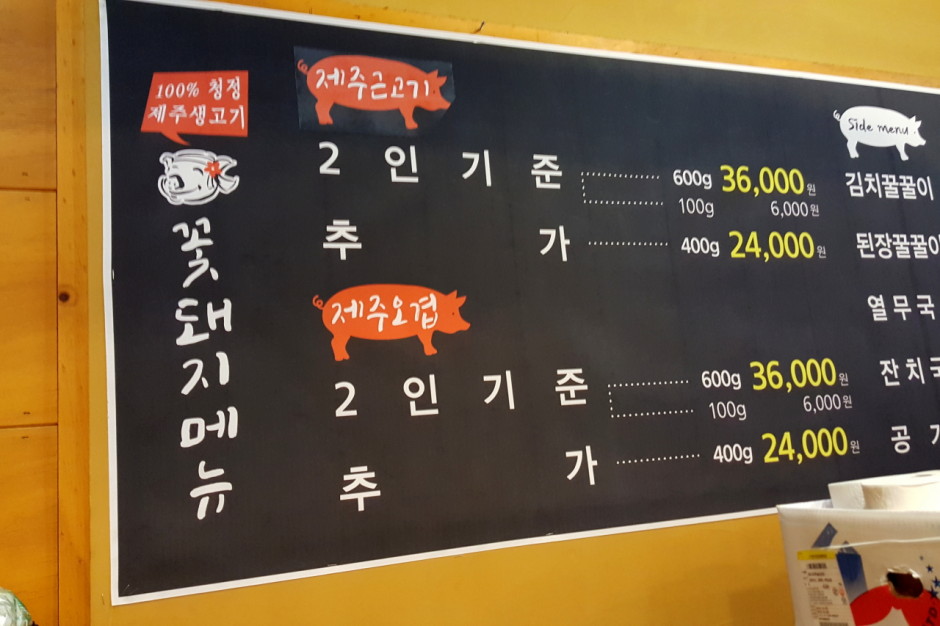 100% 청정
제주생고기
꽃돼지메뉴
제주근고기
2인기준 600g 36,000원
100g 6,000원
추가 400g 24,000원
제주오겹
2인기준 600g 36,000원
100g 6,000원
추가 400g 24,000원
Side menu
김치꿀꿀이
된장꿀꿀이
열무국
잔치국
공기